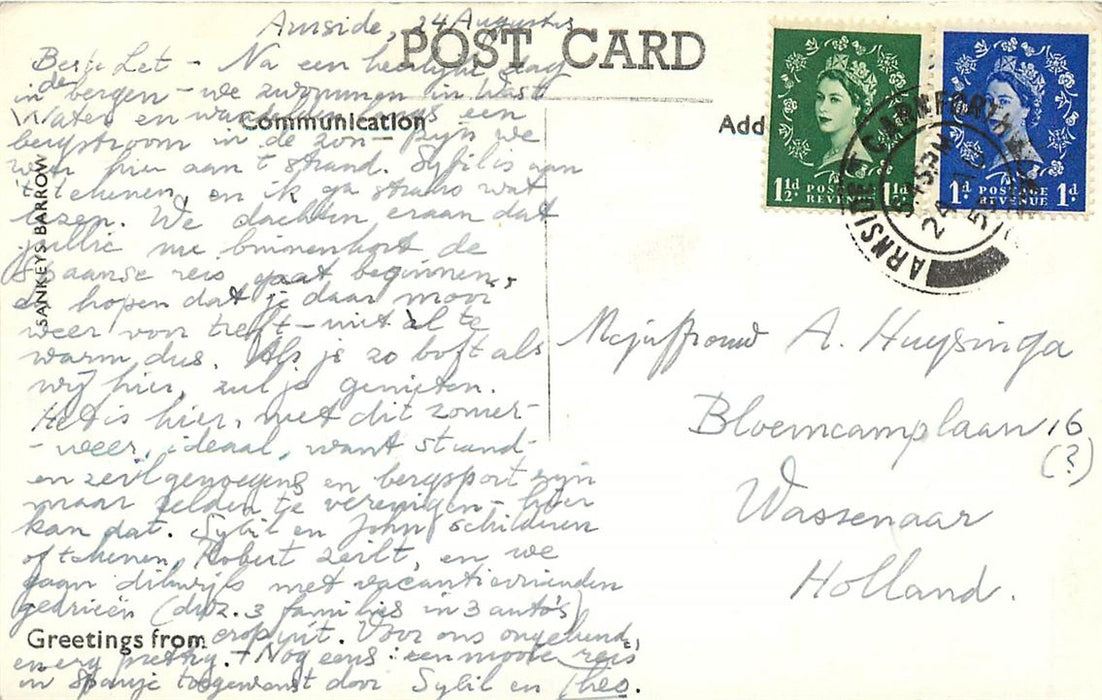 Arnside, 24 Augustus
POST CARD
Beste Let - Na een heerlijke dag
in de bergen - we zwommen in Wast
Water en een
Communication
Add
bergstroom in de zon - zijn we
weer hier aan 't strand. Sybil is aan
't tekenen, en ik ga straks wat
lezen. We dachten eraan dat
jullie nu binnenkort de
Spaanse reis gaat beginnen,
en hopen dat je daar mooi
weer voor treft - niet àl te
warm, dus. Als je zo boft als
wij hier, zul je genieten.
Het is hier, met dit zomer-
-weer, ideaal, want strand-
en zeilgenoegens en bergsport zijn
maar zelden te verenigen - hier
kan dat. Sybil en John schilderen
of tekenen, Robert zeilt, en we
gaan dikwijls met vacantievrienden
gedrieën (d.w.z. 3 families in 3 auto's)
Greetings from
eropuit. Voor ons ongekend,
en erg prettig. - Nog eens: een mooie reis
in Spanje toegewenst door Sybil en Theo.
SANKEYS BARROW
1½d POSTAGE REVENUE 1½d
1d POSTAGE REVENUE 1d
ARNSIDE CARNFORTH
24
Mejuffrouw A. Huysinga
Bloemcamplaan 16
(?)
Wassenaar
Holland.